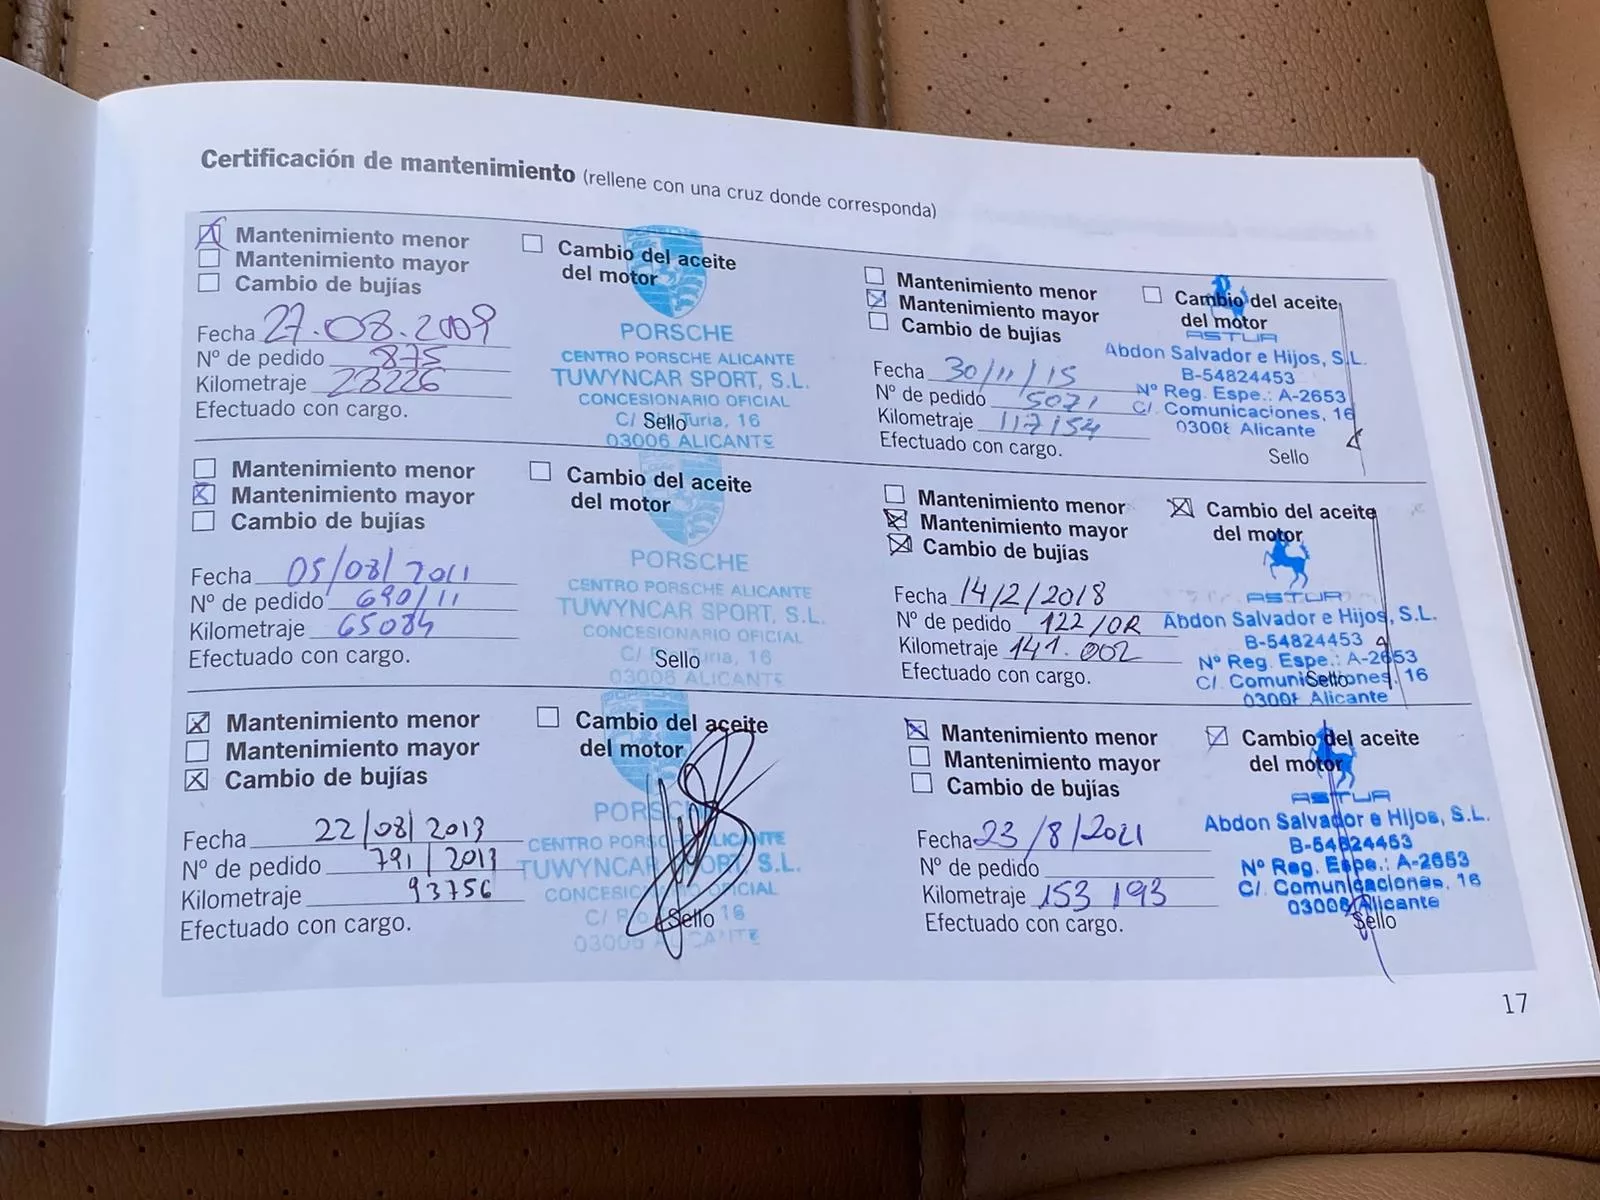 Certificación de mantenimiento (rellene con una cruz donde corresponda)
Mantenimiento menor
Mantenimiento mayor
Cambio de bujías
Cambio del aceite
del motor
Fecha 27.08.2009
Nº de pedido 875
Kilometraje 23226
Efectuado con cargo.
PORSCHE
CENTRO PORSCHE ALICANTE
TUWYNCAR SPORT, S.L.
CONCESIONARIO OFICIAL
C/ Turia, 16
Sello
03006 ALICANTE
Mantenimiento menor
Mantenimiento mayor
Cambio de bujías
Cambio del aceite
del motor
Fecha 05/08/2011
Nº de pedido 690/11
Kilometraje 65084
Efectuado con cargo.
PORSCHE
CENTRO PORSCHE ALICANTE
TUWYNCAR SPORT, S.L.
CONCESIONARIO OFICIAL
C/ Turia, 16
Sello
03006 ALICANTE
Mantenimiento menor
Mantenimiento mayor
Cambio de bujías
Cambio del aceite
del motor
Fecha 22/08/2013
Nº de pedido 791/2013
Kilometraje 93756
Efectuado con cargo.
PORSCHE
CENTRO PORSCHE ALICANTE
TUWYNCAR SPORT, S.L.
CONCESIONARIO OFICIAL
C/ 16
Sello
03006 ALICANTE
Mantenimiento menor
Mantenimiento mayor
Cambio de bujías
Cambio del aceite
del motor
Fecha 30/11/15
Nº de pedido 5071
Kilometraje 117154
Efectuado con cargo.
ASTUR
Abdon Salvador e Hijos, S.L.
B-54824453
Nº Reg. Espe.: A-2653
C/. Comunicaciones, 16
03008 Alicante
Sello
Mantenimiento menor
Mantenimiento mayor
Cambio de bujías
Cambio del aceite
del motor
Fecha 14/2/2018
Nº de pedido 122/OR
Kilometraje 141.002
Efectuado con cargo.
ASTUR
Abdon Salvador e Hijos, S.L.
B-54824453
Nº Reg. Espe.: A-2653
C/. Comunicaciones, 16
Sello
03008 Alicante
Mantenimiento menor
Mantenimiento mayor
Cambio de bujías
Cambio del aceite
del motor
Fecha 23/8/2021
Nº de pedido
Kilometraje 153 193
Efectuado con cargo.
ASTUR
Abdon Salvador e Hijos, S.L.
B-54824453
Nº Reg. Espe.: A-2653
C/. Comunicaciones, 16
03008 Alicante
Sello
17